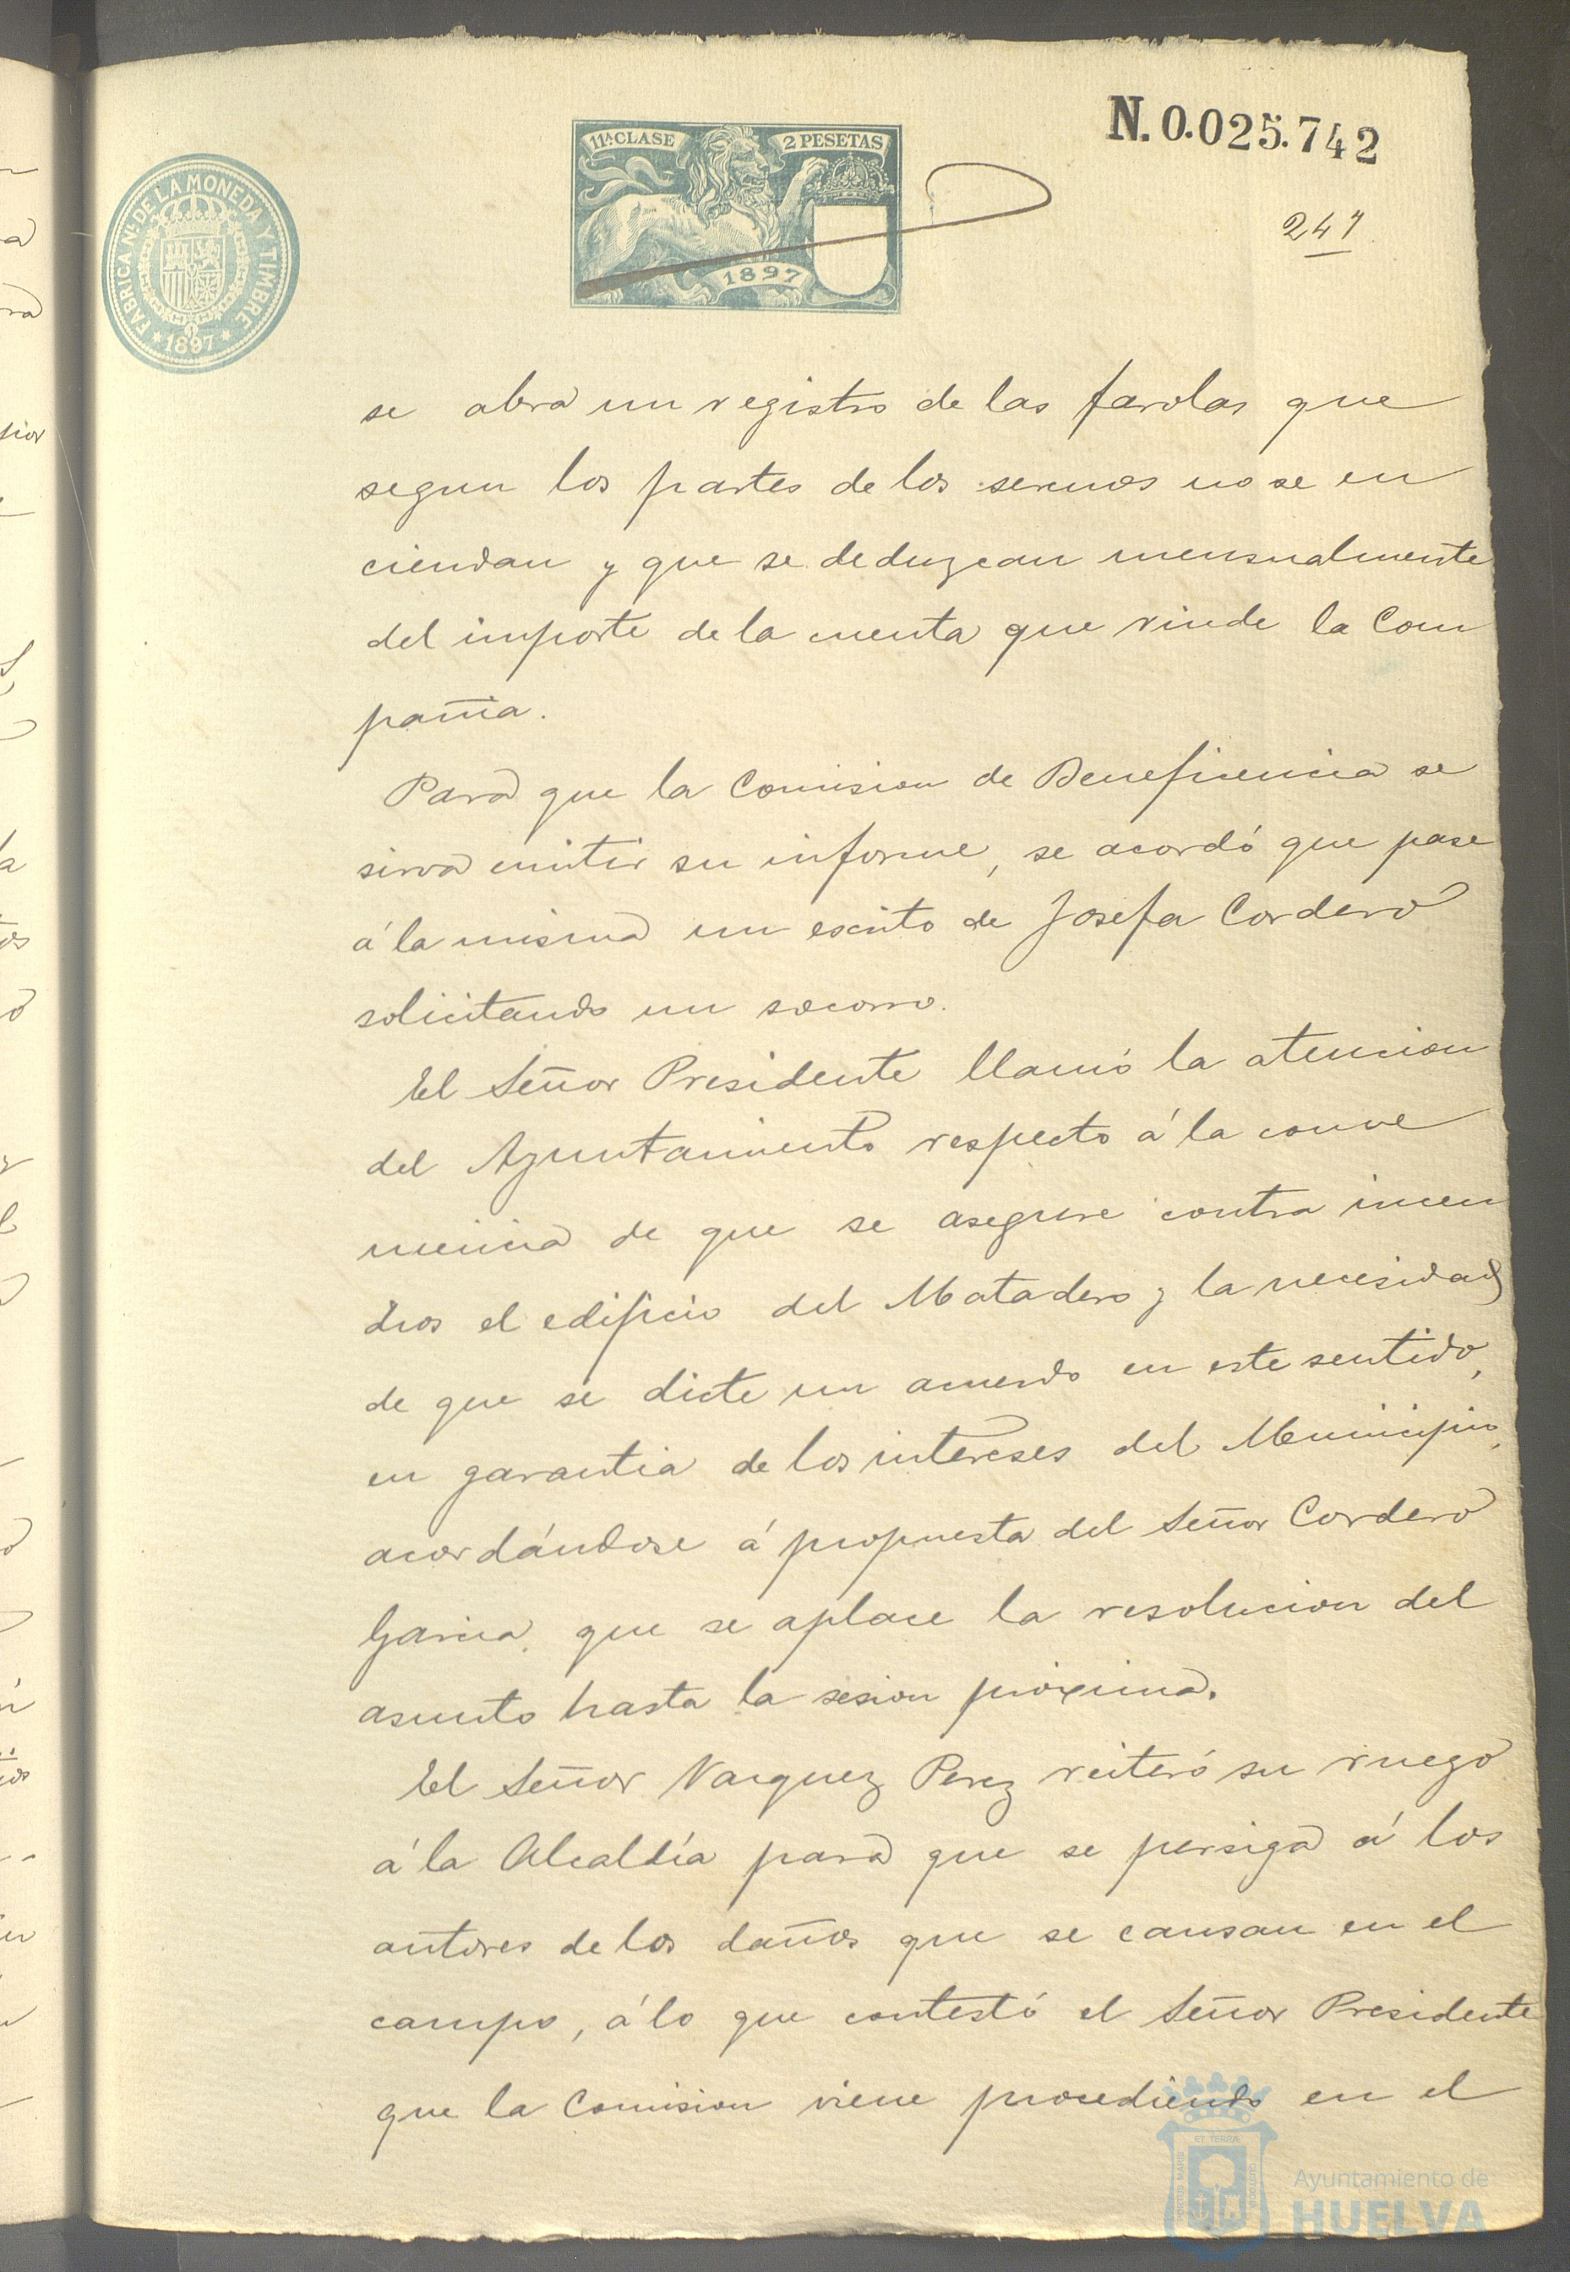 N. 0.025.742
11ª CLASE 2 PESETAS
1897
FABRICA Nl. DE LA MONEDA Y TIMBRE
* 1897 *
247
se abra un registro de las farolas que
segun los partes de los serenos no se en
ciendan y que se deduzcan mensualmente
del importe de la cuenta que rinde la Com
pañia.
Para que la Comision de Beneficencia se
sirva emitir su informe, se acordó que pase
á la misma un escrito de Josefa Cordero
solicitando un socorro.
El Señor Presidente llamó la atencion
del Ayuntamiento respecto á la conve
niencia de que se asegure contra incen
dios el edificio del Matadero y la necesidad
de que se dicte un acuerdo en este sentido,
en garantia de los intereses del Municipio,
acordándose á propuesta del Señor Cordero
Garcia, que se aplace la resolucion del
asunto hasta la sesion próxima.
El Señor Vazquez Perez reiteró su ruego
á la Alcaldía para que se persiga á los
autores de los daños que se causan en el
campo, á lo que contestó el Señor Presidente
que la Comision viene prosediendo en el
Ayuntamiento de
HUELVA